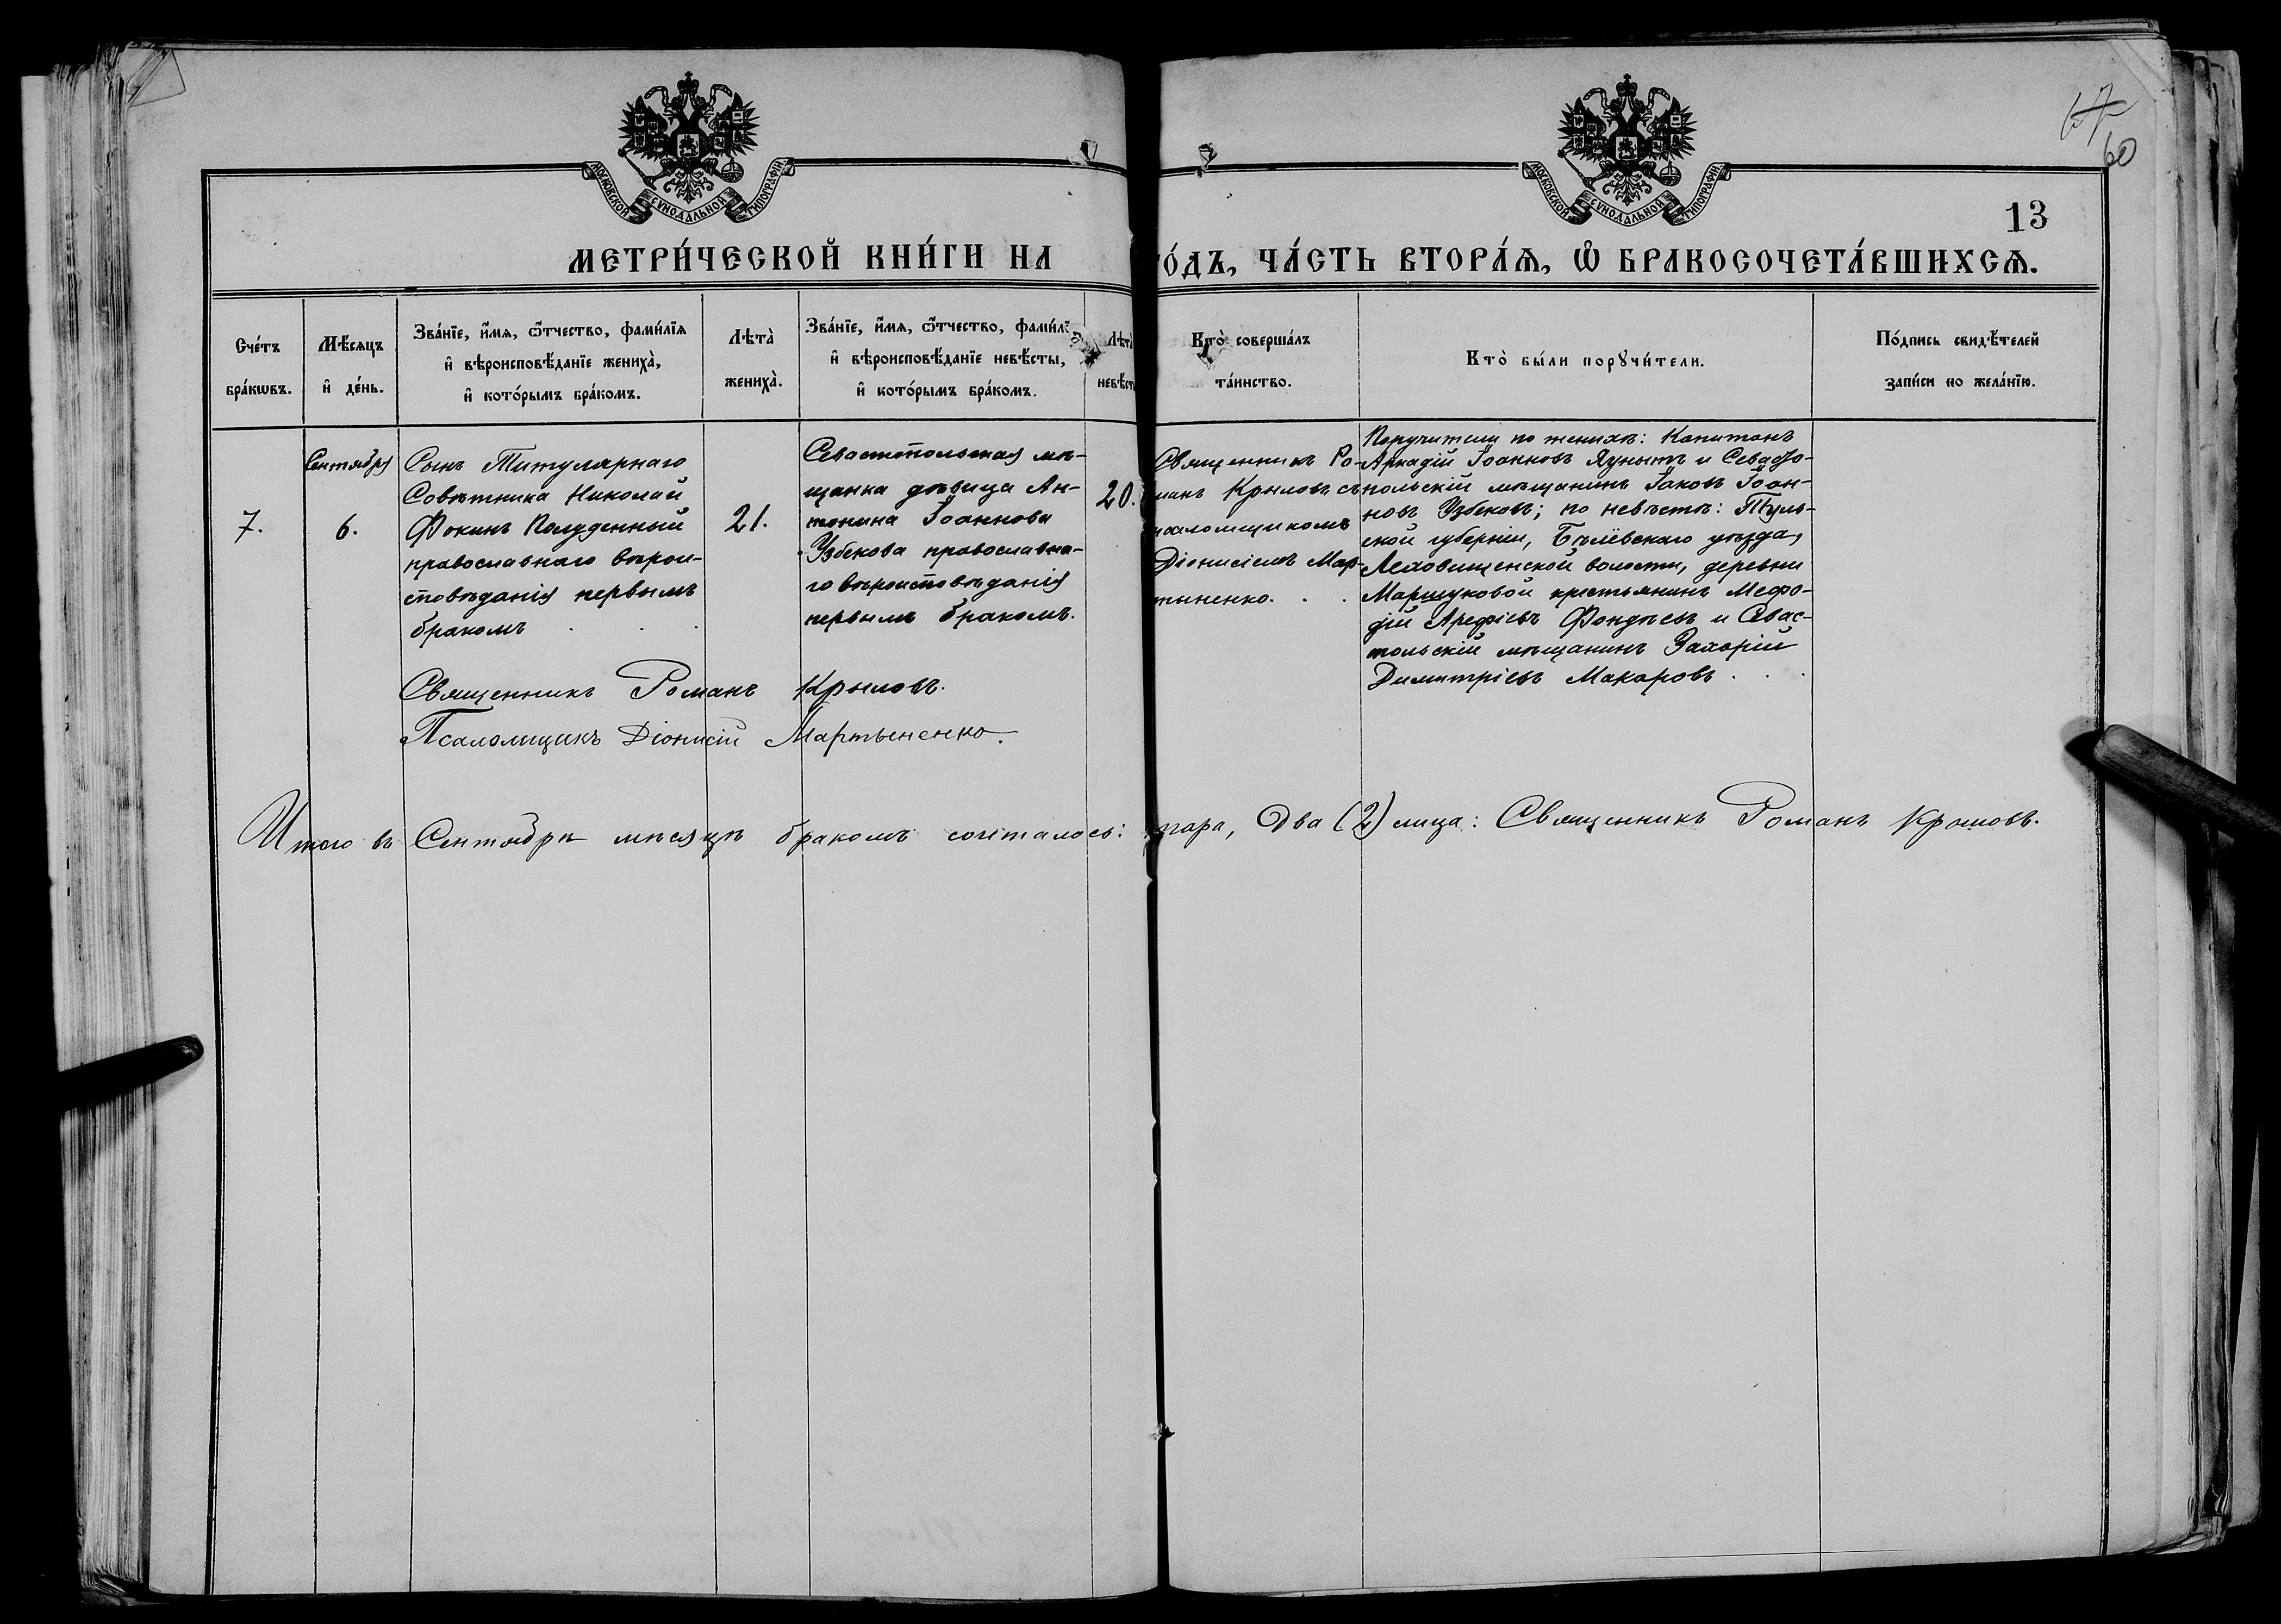 67
60
МОСКОВСКОЙ СѴНОДАЛЬНОЙ ТИПОГРАФІИ
МОСКОВСКОЙ СѴНОДАЛЬНОЙ ТИПОГРАФІИ
13
МЕТРИ́ЧЕСКОЙ КНИ́ГИ НА
ГО́ДЪ, ЧА́СТЬ ВТОРА́Ѧ, Ѡ҆ БРАКОСОЧЕТА́ВШИХСѦ.
Сче́тъ
бра́кѡвъ.
Мѣ́сѧцъ
и҆ де́нь.
Зва́нїе, и҆́мѧ, ѻ҆́тчество, фами́лїѧ
и҆ вѣроисповѣ́данїе жениха̀,
и҆ кото́рымъ бра́комъ.
Лѣта̀
жениха̀.
Зва́нїе, и҆́мѧ, ѻ҆́тчество, фами́лї
и҆ вѣроисповѣ́данїе невѣ́сты,
и҆ кото́рымъ бра́комъ.
Лѣта̀
невѣ́ст
Кто̀ соверша́лъ
та́инство.
Кто̀ бы́ли порꙋчи́тели.
По́дпись свидѣ́телей
за́писи по жела́нїю.
7.
Сентября
6.
Сынъ Титулярнаго
Совѣтника Николай
Фокинъ Полуденный
православнаго вѣрои-
сповѣданія первымъ
бракомъ
21.
Севастопольская мѣ-
щанка дѣвица Ан-
тонина Іоаннова
Узбекова православна-
го вѣроисповѣданія
первымъ бракомъ.
20.
Священникъ Ро-
манъ Крыловъ съ
псаломщикомъ
Діонисіемъ Мар-
тыненко.
Поручители по женихѣ: Капитанъ
Аркадій Іоанновъ и Севасто-
польскій мѣщанинъ Іаковъ Іоан-
новъ Узбековъ; по невѣстѣ: Туль-
ской губерніи, Бѣлёвскаго уѣзда,
волости, деревни
крестьянинъ Мефо-
дій Арефіевъ и Севас-
тольскій мѣщанинъ Захарій
Димитріевъ Макаровъ
Священникъ Романъ Крыловъ.
Псаломщикъ Діонисій Мартыненко.
Итого въ Сентябрѣ мѣсяцѣ бракомъ сочеталось: пара, два (2) лица: Священникъ Романъ Крыловъ.